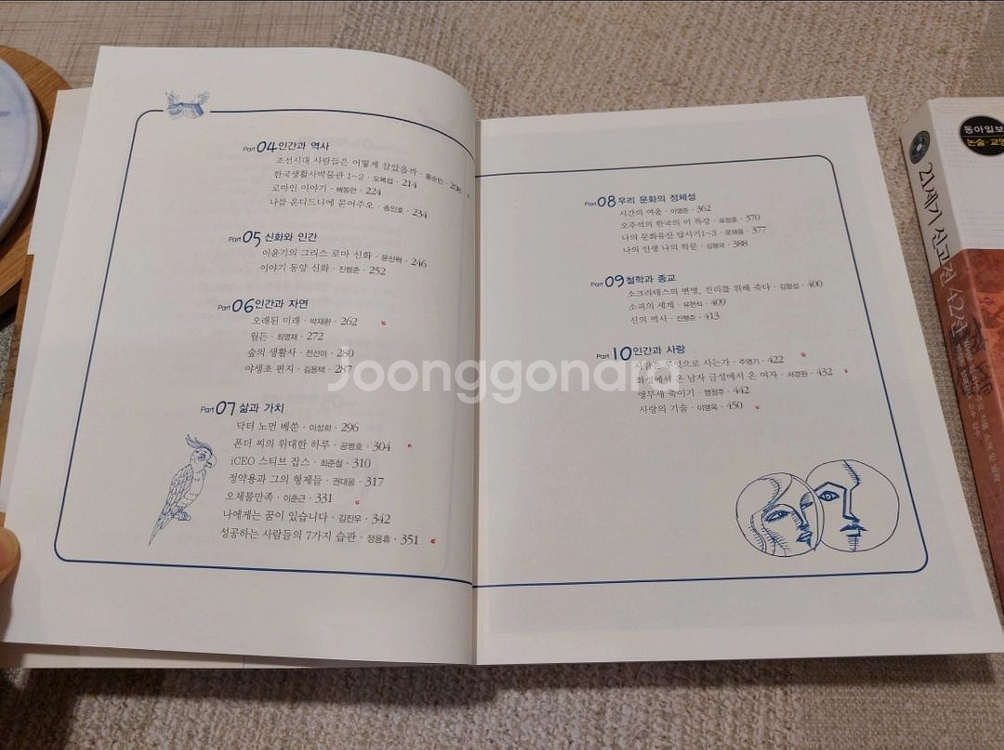 Part 04 인간과 역사
조선시대 사람들은 어떻게 살았을까 · 홍순민 · 206
한국생활사박물관 1~2 · 오복섭 · 214
로마인 이야기 · 배동만 · 224
나를 운디드니에 묻어주오 · 송인호 · 234
Part 05 신화와 인간
이윤기의 그리스 로마 신화 · 문신혁 · 246
이야기 동양 신화 · 진형준 · 252
Part 06 인간과 자연
오래된 미래 · 박재환 · 262
월든 · 최명재 · 272
숲의 생활사 · 전선미 · 280
야생초 편지 · 김용택 · 287
Part 07 삶과 가치
닥터 노먼 베쑨 · 이성희 · 296
폰더 씨의 위대한 하루 · 공병호 · 304
iCEO 스티브 잡스 · 최준철 · 310
정약용과 그의 형제들 · 권대웅 · 317
오체불만족 · 이춘근 · 331
나에게는 꿈이 있습니다 · 김진우 · 342
성공하는 사람들의 7가지 습관 · 정용휴 · 351
Part 08 우리 문화의 정체성
시간의 여울 · 362
오주석의 한국의 미 특강 · 370
나의 문화유산 답사기1~3 · 377
나의 인생 나의 학문 · 388
Part 09 철학과 종교
소크라테스의 변명, 진리를 위해 죽다 · 400
소피의 세계 · 유헌식 · 409
신의 역사 · 진형준 · 413
Part 10 인간과 사랑
사람은 무엇으로 사는가 · 주명기 · 422
화성에서 온 남자 금성에서 온 여자 · 서경원 · 432
앵무새 죽이기 · 442
사랑의 기술 · 이명옥 · 450
Joonggonara
동아일보
논술·교양
21세기 신고전 42선